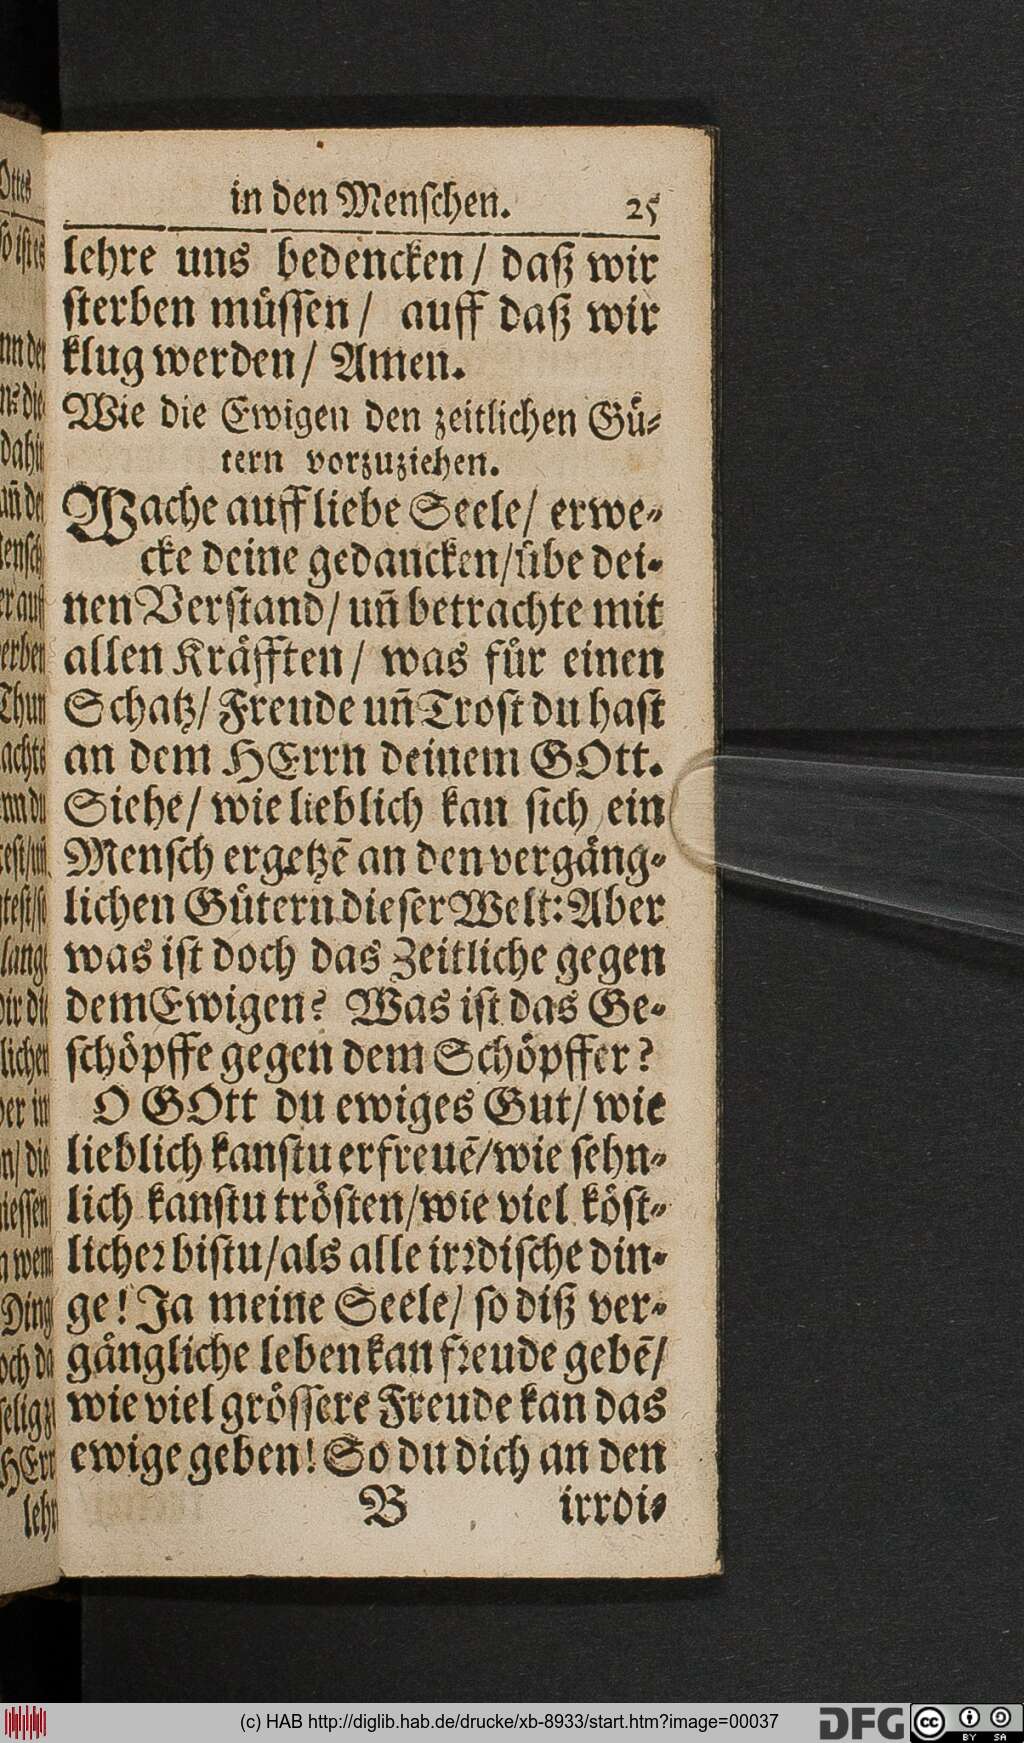 in den Menschen. 25
lehre uns bedencken/ daß wir
sterben müssen/ auff daß wir
klug werden/ Amen.
Wie die Ewigen den zeitlichen Gü-
tern vorzuziehen.
Wache auff liebe Seele/ erwe-
cke deine gedancken/ übe dei-
nen Verstand/ uñ betrachte mit
allen Kräfften/ was für einen
Schatz/ Freude uñ Trost du hast
an dem HErrn deinem GOtt.
Siehe/ wie lieblich kan sich ein
Mensch ergetzē an den vergäng-
lichen Gütern dieser Welt: Aber
was ist doch das Zeitliche gegen
dem Ewigen? Was ist das Ge-
schöpffe gegen dem Schöpffer?
O GOtt du ewiges Gut/ wie
lieblich kanstu erfreuē/ wie sehn-
lich kanstu trösten/ wie viel köst-
licher bistu/ als alle irrdische din-
ge! Ja meine Seele/ so diß ver-
gängliche leben kan freude gebē/
wie viel grössere Freude kan das
ewige geben! So du dich an den
B irrdi-
(c) HAB http://diglib.hab.de/drucke/xb-8933/start.htm?image=00037
DFG
cc BY SA